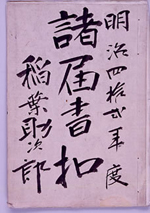 明治四拾弐年度
諸届書扣
稲葉助次郎